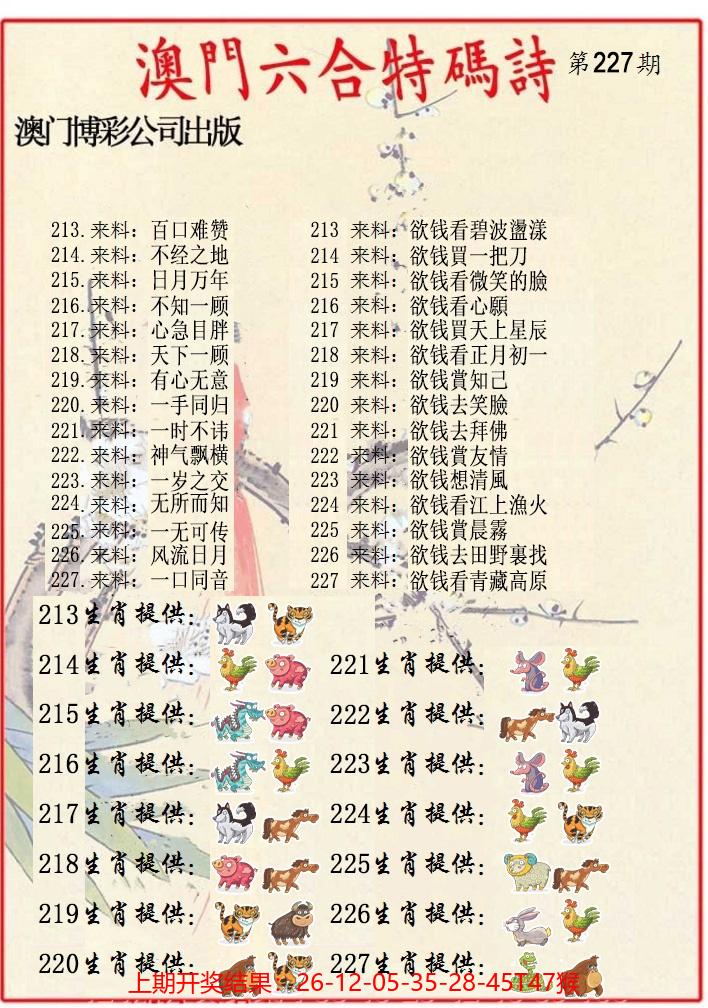 澳門六合特碼詩 第227期
澳门博彩公司出版
213.来料：百口难赞
214.来料：不经之地
215.来料：日月万年
216.来料：不知一顾
217.来料：心急目胖
218.来料：天下一顾
219.来料：有心无意
220.来料：一手同归
221.来料：一时不讳
222.来料：神气飘横
223.来料：一岁之交
224.来料：无所而知
225.来料：一无可传
226.来料：风流日月
227.来料：一口同音
213 来料：欲钱看碧波盪漾
214 来料：欲钱買一把刀
215 来料：欲钱看微笑的臉
216 来料：欲钱看心願
217 来料：欲钱買天上星辰
218 来料：欲钱看正月初一
219 来料：欲钱賞知己
220 来料：欲钱去笑臉
221 来料：欲钱去拜佛
222 来料：欲钱賞友情
223 来料：欲钱想清風
224 来料：欲钱看江上漁火
225 来料：欲钱賞晨霧
226 来料：欲钱去田野裏找
227 来料：欲钱看青藏高原
213生肖提供：
214生肖提供：
215生肖提供：
216生肖提供：
217生肖提供：
218生肖提供：
219生肖提供：
220生肖提供：
221生肖提供：
222生肖提供：
223生肖提供：
224生肖提供：
225生肖提供：
226生肖提供：
227生肖提供：
上期开奖结果：26-12-05-35-28-45T47猴